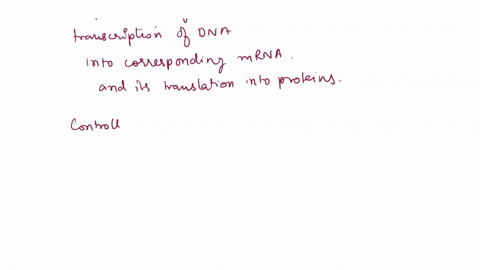 transcription of DNA
into corresponding mRNA.
and its translation into proteins.
Controll